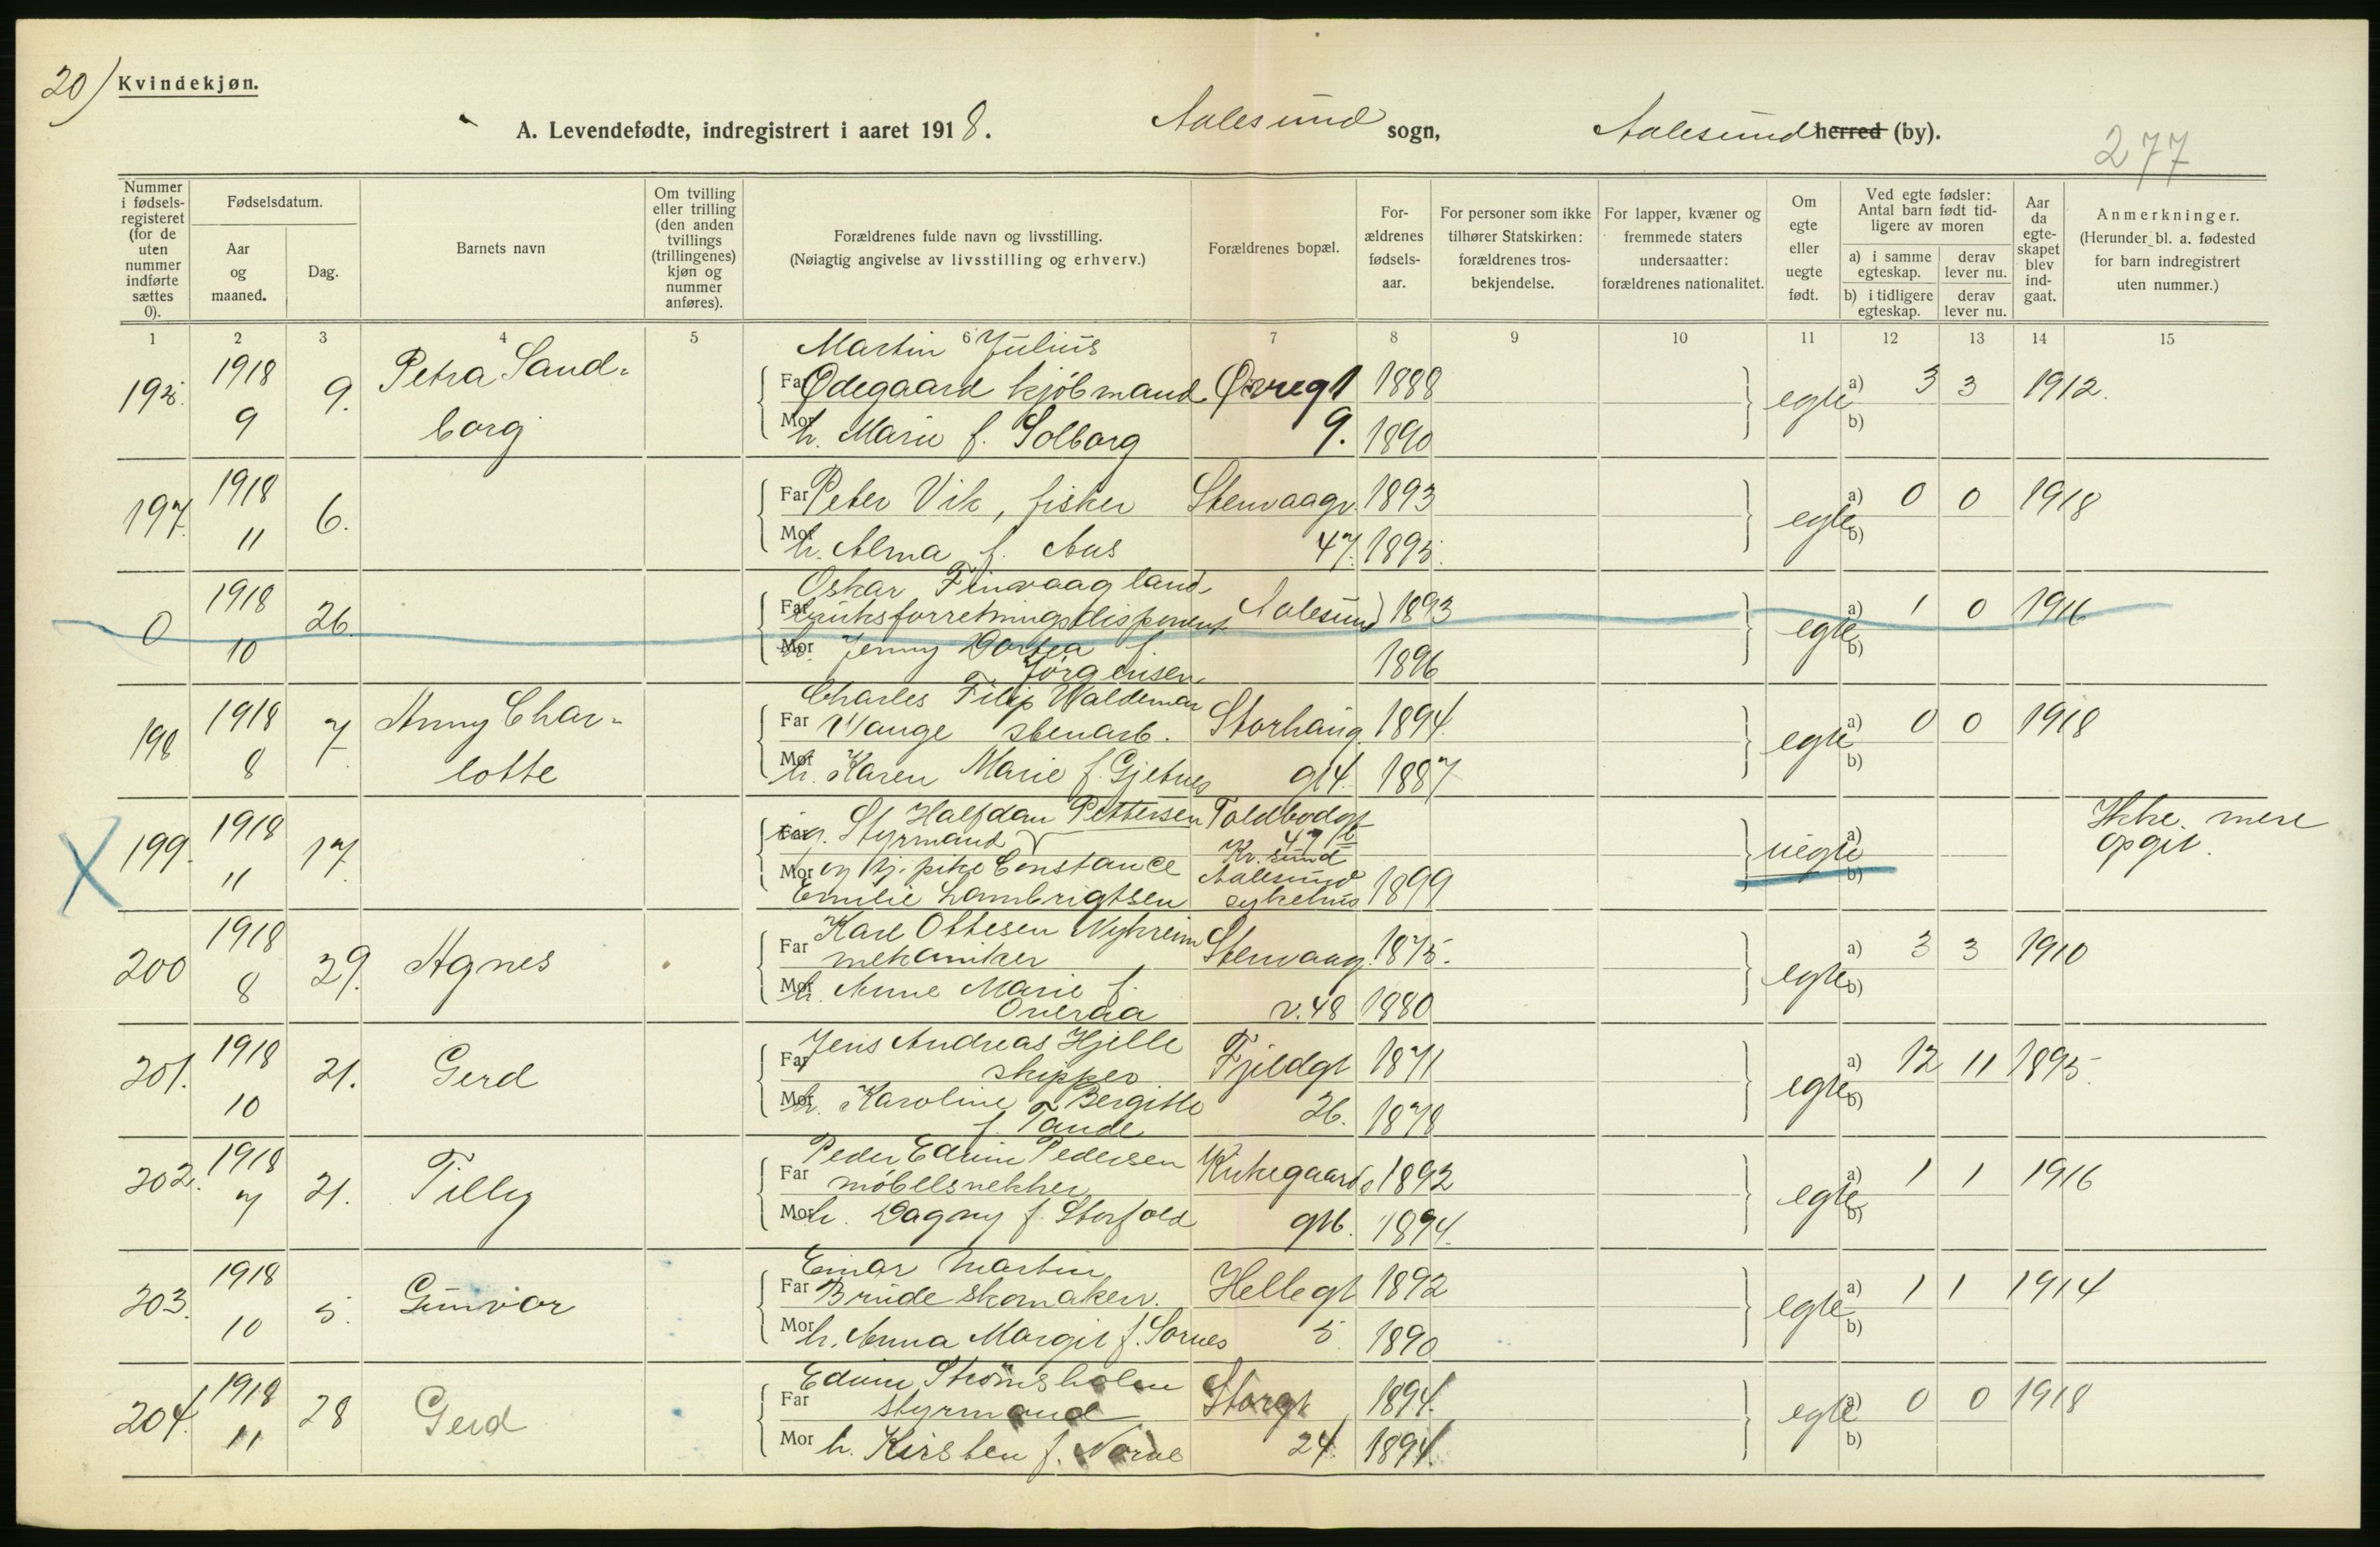 20)
Kvindekjøn.
A. Levendefødte, indregistrert i aaret 1918. Aalesund sogn, Aalesund herred (by).
277
Nummer i fødsels-registeret (for de uten nummer indførte sættes 0).
Fødselsdatum.
Aar og maaned.
Dag.
Barnets navn
Om tvilling eller trilling (den anden tvillings (trillingenes) kjøn og nummer anføres).
Forældrenes fulde navn og livsstilling.
(Nøiagtig angivelse av livsstilling og erhverv.)
Forældrenes bopæl.
For-ældrenes fødsels-aar.
For personer som ikke tilhører Statskirken: forældrenes tros-bekjendelse.
For lapper, kvæner og fremmede staters undersaatter: forældrenes nationalitet.
Om egte eller uegte født.
Ved egte fødsler: Antal barn født tid-ligere av moren
a) i samme egteskap.
derav lever nu.
b) i tidligere egteskap.
derav lever nu.
Aar da egte-skapet blev ind-gaat.
Anmerkninger.
(Herunder bl. a. fødested for barn indregistrert uten nummer.)
1 2 3 4 5 6 7 8 9 10 11 12 13 14 15
Martin Julius
1918 9. Petra Sand-
Far Ødegaard kjøbmand Øvregt 1888 egte a) 3 3 1912.
9 borg
Mor h. Marie f. Solborg 9. 1890 b)
197. 1918 6. Far Peter Vik, fisker Stenvaagv. 1893 egte a) 0 0 1918
11 Mor h. Alma f. Aas 47. 1895. b)
Oskar Finvaag land-
0 1918 26. Far bruksforretningsdisponent Aalesund 1893 egte a) 1 0 1916
10 Mor h. Jenny Dortea f. 1896 b)
Jörgensen
Charles Filip Waldemar
198 1918 7 Anny Char-
Far Vange stenarb. Storhaug 1894. egte a) 0 0 1918
8 lotte
Mor h. Karen Marie f. Gjetnes gt 4. 1887 b)
199. 1918 17. Far Halfdan Pettersen Toldbodgt uegte a) Ikke mere
Styrmand 47 b opgit.
Kr.sund
11 Mor og pike Constance Aalesund 1899 b)
Emilie Lambrigtsen sykehus
200 1918 29. Agnes
Far Karl Ottesen Nyhreim Stenvaag 1875. egte a) 3 3 1910
mekaniker
8 Mor h. Anne Marie f. v. 48 1880 b)
Overaa
201. 1918 21. Gerd
Far Jens Andreas Hjelle Fjeldgt 1871 egte a) 12 11 1895.
skipper
10 Mor h. Karoline Bergitte 26. 1878 b)
f. Tande
202. 1918 21. Tilly
Far Peder Edvin Pedersen Kirkegaards 1892 egte a) 1 1 1916
møbelsnekker
7 Mor h. Dagny f. Storfold gt 6. 1894. b)
203. 1918 5. Gunvor
Einar Martin
Far Brude skomakerv. Hellegt 1892 egte a) 1 1 1914
10 Mor h. Anna Margit f. Sornes 5. 1890 b)
204. 1918 28 Gerd
Edvin Strömsholm
Far styrmand Storgt 1894. egte a) 0 0 1918
11 Mor h. Kirsten f. Norne 24. 1894. b)